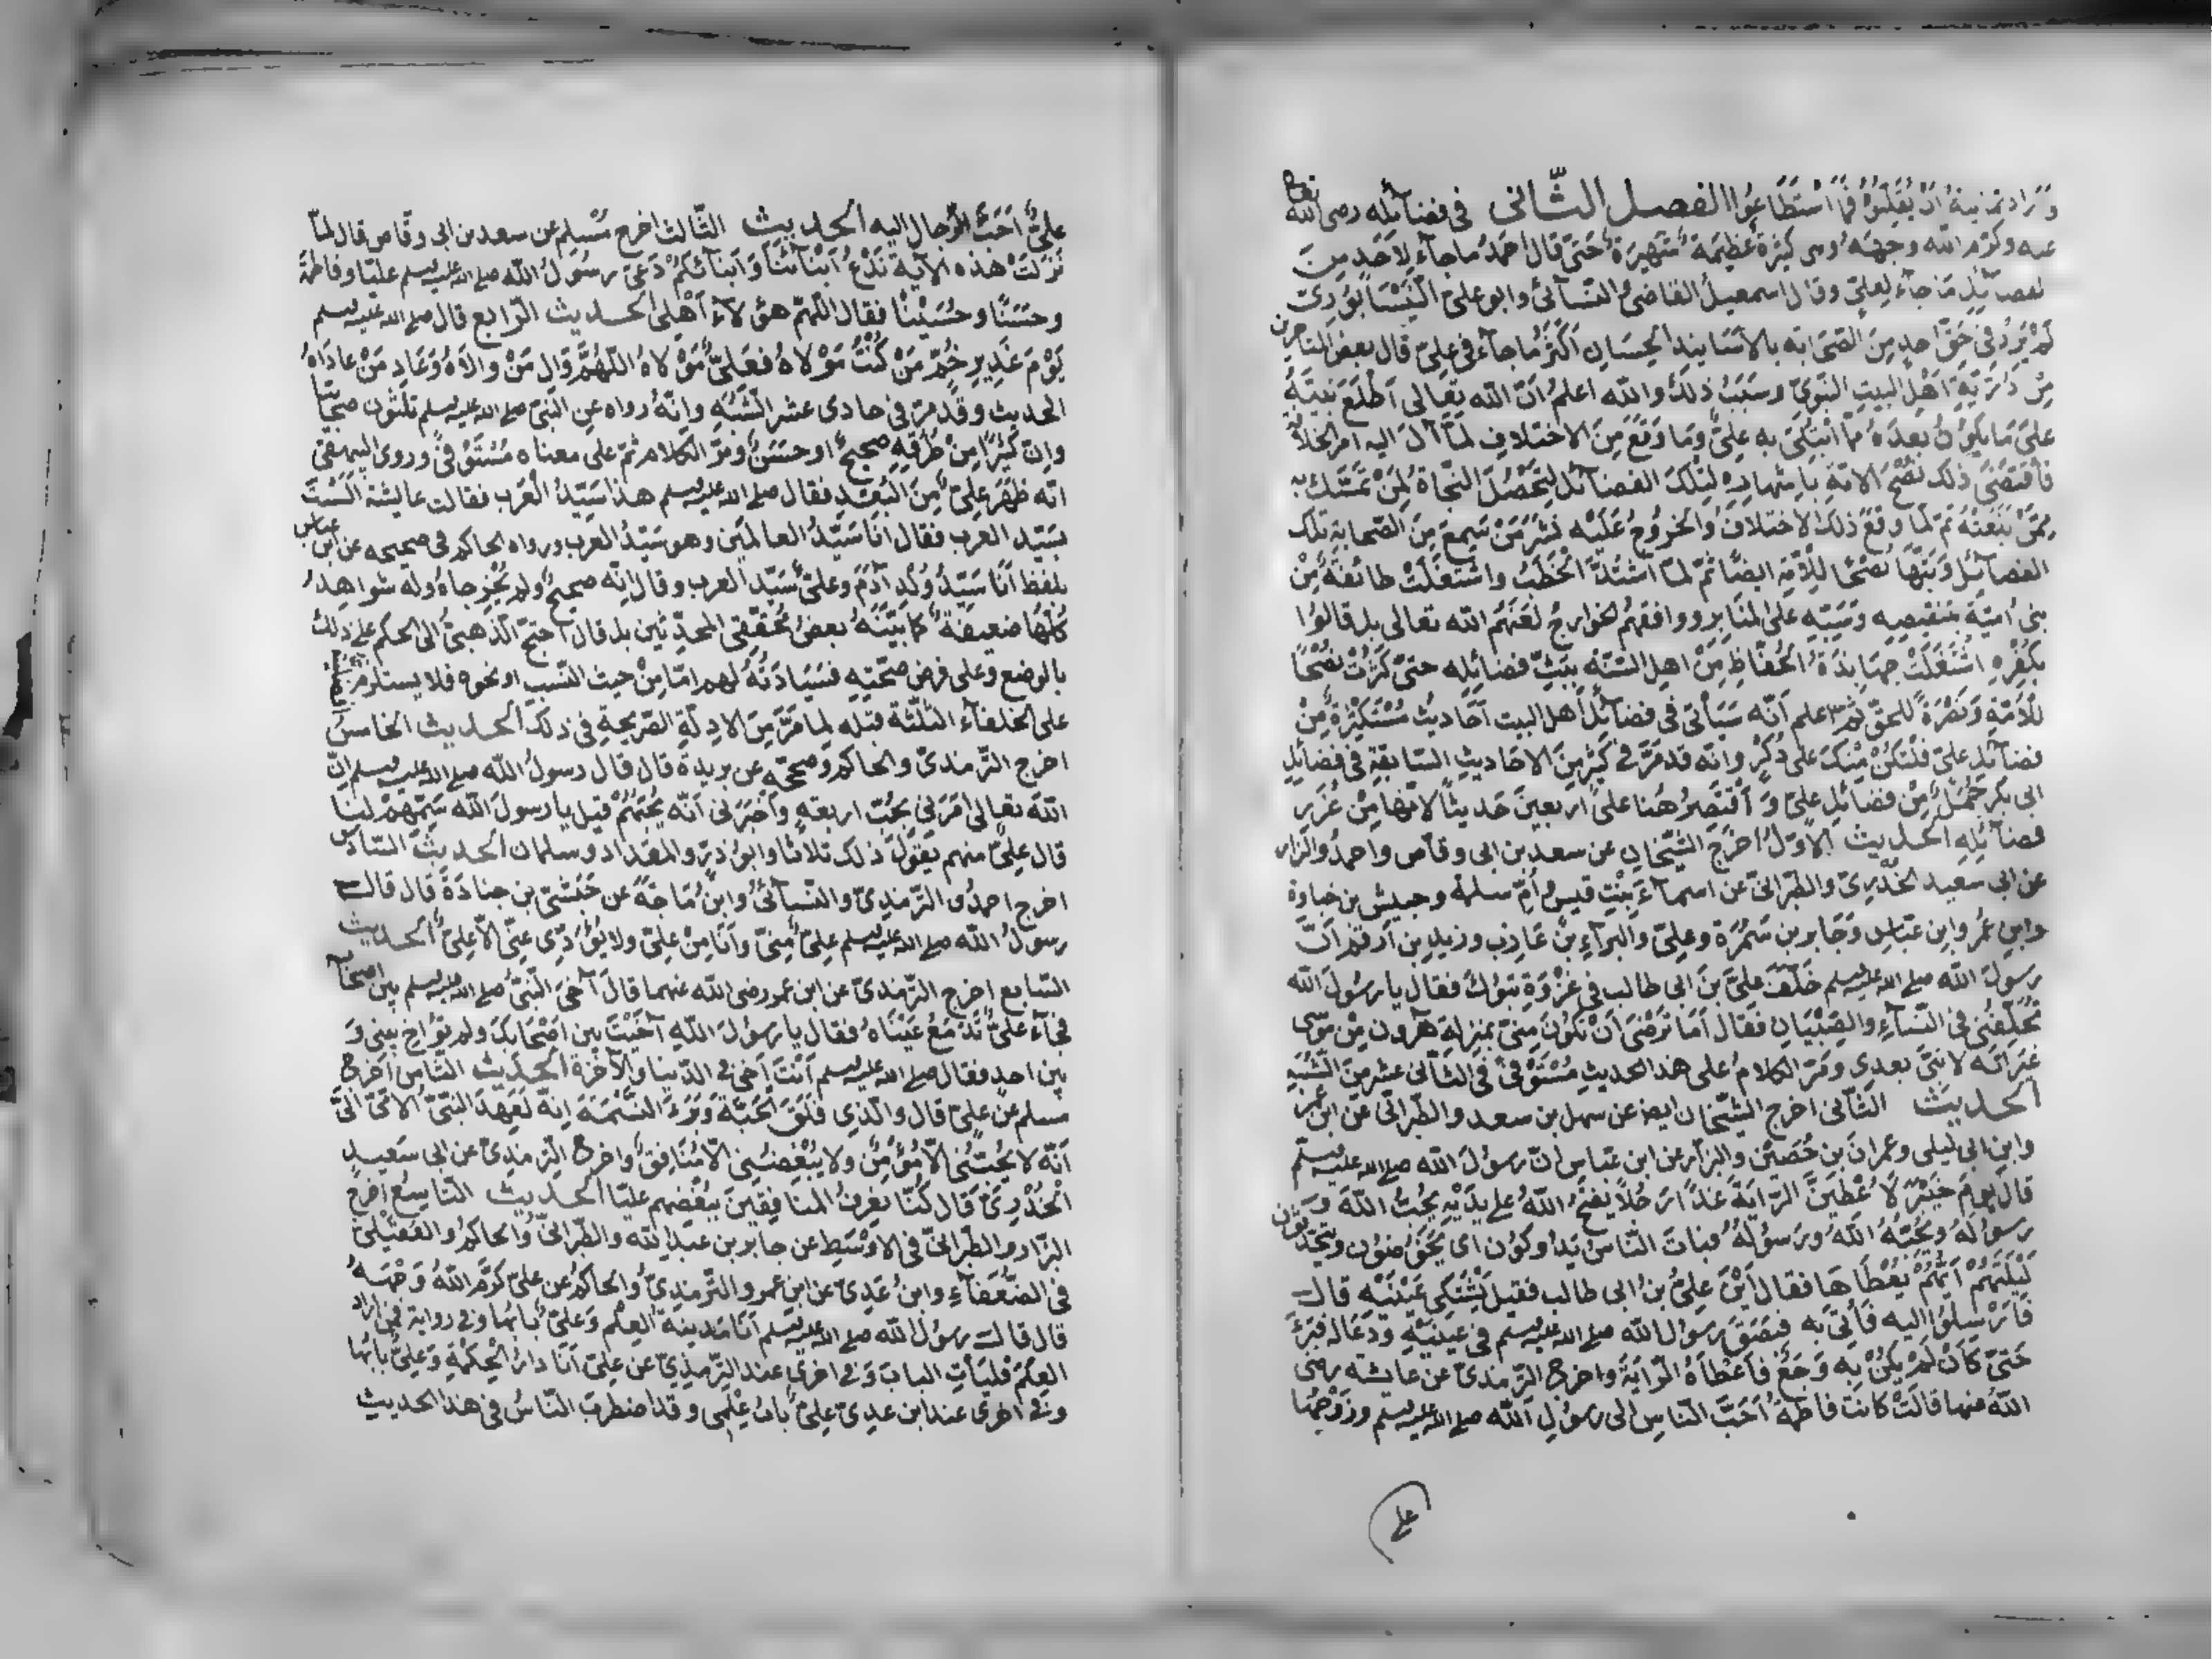 وزاد ثمانية ان يقتلوه فما استطاعوا الفصل الثانى فى فضائله رضى الله تعالى
عنه وكرم الله وجهه وهى كثيرة عظيمة شهيرة حتى قال احمد ما جاء لاحد من
الفضائل ما جاء لعلى وقال اسمعيل القاضى والنسائى وابو على النيسابورى
لم يرد فى حق احد من الصحابة بالاسانيد الحسان اكثر ما جاء فى على قال بعض المتاخرين
من ذرية اهل البيت النبوى وسبب ذلك والله اعلم ان الله تعالى اطلع نبيه
على ما يكون بعده مما ابتلى به على وما وقع من الاختلاف لما آل اليه امر الخلافة
فاقتضى ذلك نصح الامة باشهاره لتلك الفضائل لتحصل النجاة لمن تمسك به
ممن بلغته ثم لما وقع ذلك الاختلاف والخروج عليه نشر من سمع من الصحابة تلك
الفضائل وبثها نصحا للامة ايضا ثم لما اشتد الخطب واشتغلت طائفة من
بنى امية بتنقيصه وسبه على المنابر ووافقهم الخوارج لعنهم الله تعالى بل قالوا
بكفره اشتغلت جهابذة الحفاظ من اهل السنة ببث فضائله حتى كثرت نصحا
للامة ونصرة للحق ثم اعلم انه سيأتى فى فضائل اهل البيت احاديث مستكثرة من
فضائل على فلتكن منك على ذكر وانه قد مر فى كثير من الاحاديث السابقة فى فضائل
ابى بكر جمل من فضائل على واقتصر هنا على اربعين حديثا لانها من غرر
فضائله الحديث الاول اخرج الشيخان عن سعد بن ابى وقاص واحمد والبزار
عن ابى سعيد الخدرى والطبرانى عن اسماء بنت قيس وام سلمة وحبيش بن جنادة
وابن عمر وابن عباس وجابر بن سمرة وعلى والبراء بن عازب وزيد بن ارقم ان
رسول الله صلى الله عليه وسلم خلف على بن ابى طالب فى غزوة تبوك فقال يا رسول الله
تخلفنى فى النساء والصبيان فقال اما ترضى ان تكون منى بمنزلة هرون من موسى
غير انه لا نبى بعدى ومر الكلام على هذا الحديث مستوفى فى الثانى عشر من الشبه
الحديث الثانى اخرج الشيخان ايضا عن سهل بن سعد والطبرانى عن ابن عمر
وابن ابى ليلى وعمران بن حصين والبزار عن ابن عباس ان رسول الله صلى الله عليه وسلم
قال يوم خيبر لاعطين الراية غدا رجلا يفتح الله على يديه يحب الله و
رسوله ويحبه الله ورسوله فبات الناس يدوكون اى يخوضون ويتحدثون
ليلتهم ايهم يعطاها فقال اين على بن ابى طالب فقيل يشتكى عينيه قال
فارسلوا اليه فأتى به فبصق رسول الله صلى الله عليه وسلم فى عينيه ودعا له فبرئ
حتى كأن لم يكن به وجع فاعطاه الراية واخرج الترمذى عن عايشة رضى
الله عنها قالت كانت فاطمة احب الناس الى رسول الله صلى الله عليه وسلم وزوجها
على
على احب الرجال اليه الحديث الثالث اخرج مسلم عن سعد بن ابى وقاص قال لما
نزلت هذه الآية ندع ابنائنا وابنائكم دعى رسول الله صلى الله عليه وسلم عليا وفاطمة
وحسنا وحسينا فقال اللهم هؤلاء اهلى الحديث الرابع قال صلى الله عليه وسلم
يوم غدير خم من كنت مولاه فعلى مولاه اللهم وال من والاه وعاد من عاداه
الحديث وقد مر فى حادى عشر الشبه وانه رواه عن النبى صلى الله عليه وسلم ثلثون صحابيا
وان كثيرا من طرقه صحيح او حسن ومر الكلام ثم على معناه مستوفى وروى البيهقى
انه ظهر على من البعد فقال صلى الله عليه وسلم هذا سيد العرب فقالت عايشة الست
بسيد العرب فقال انا سيد العالمين وهو سيد العرب ورواه الحاكم فى صحيحه عن ابن عباس
بلفظ انا سيد ولد آدم وعلى سيد العرب وقال انه صحيح ولم يخرجاه وله شواهد
كلها ضعيفة كما بينه بعض محققى المحدثين بل قال احتج الذهبى الى الحكم على ذلك
بالوضع وعلى فرض صحته فسيادته لهم اما من حيث النسب او نحوه فلا يستلزم
على الخلفاء الثلثة قبله لما مر من الادلة الصريحة فى ذلك الحديث الخامس
اخرج الترمذى والحاكم وصححه عن بريدة قال قال رسول الله صلى الله عليه وسلم ان
الله تعالى امرنى بحب اربعة واخبرنى انه يحبهم قيل يا رسول الله سمهم لنا
قال على منهم يقول ذلك ثلاثا وابو ذر والمقداد وسلمان الحديث السادس
اخرج احمد والترمذى والنسائى وابن ماجة عن حبشى بن جنادة قال قال
رسول الله صلى الله عليه وسلم على منى وانا من على ولا يؤدى عنى الا على الحديث
السابع اخرج الترمذى عن ابن عمر رضى الله عنهما قال آخى النبى صلى الله عليه وسلم بين اصحابه
فجاء على تدمع عيناه فقال يا رسول الله آخيت بين اصحابك ولم تؤاخ بينى و
بين احد فقال صلى الله عليه وسلم انت اخى فى الدنيا والآخرة الحديث الثامن اخرج
مسلم عن على قال والذى فلق الحبة وبرء النسمة انه لعهد النبى الامى الى
انه لا يحبنى الا مؤمن ولا يبغضنى الا منافق واخرج الترمذى عن ابى سعيد
الخدرى قال كنا نعرف المنافقين ببغضهم عليا الحديث التاسع اخرج
البزار والطبرانى فى الاوسط عن جابر بن عبد الله والطبرانى والحاكم والعقيلى
فى الضعفاء وابن عدى عن ابن عمر والترمذى والحاكم عن على كرم الله وجهه
قال قال رسول الله صلى الله عليه وسلم انا مدينة العلم وعلى بابها وفى رواية فمن اراد
العلم فليأت الباب وفى اخرى عند الترمذى عن على انا دار الحكمة وعلى بابها
وفى اخرى عند ابن عدى على باب علمى وقد اضطرب الناس فى هذا الحديث